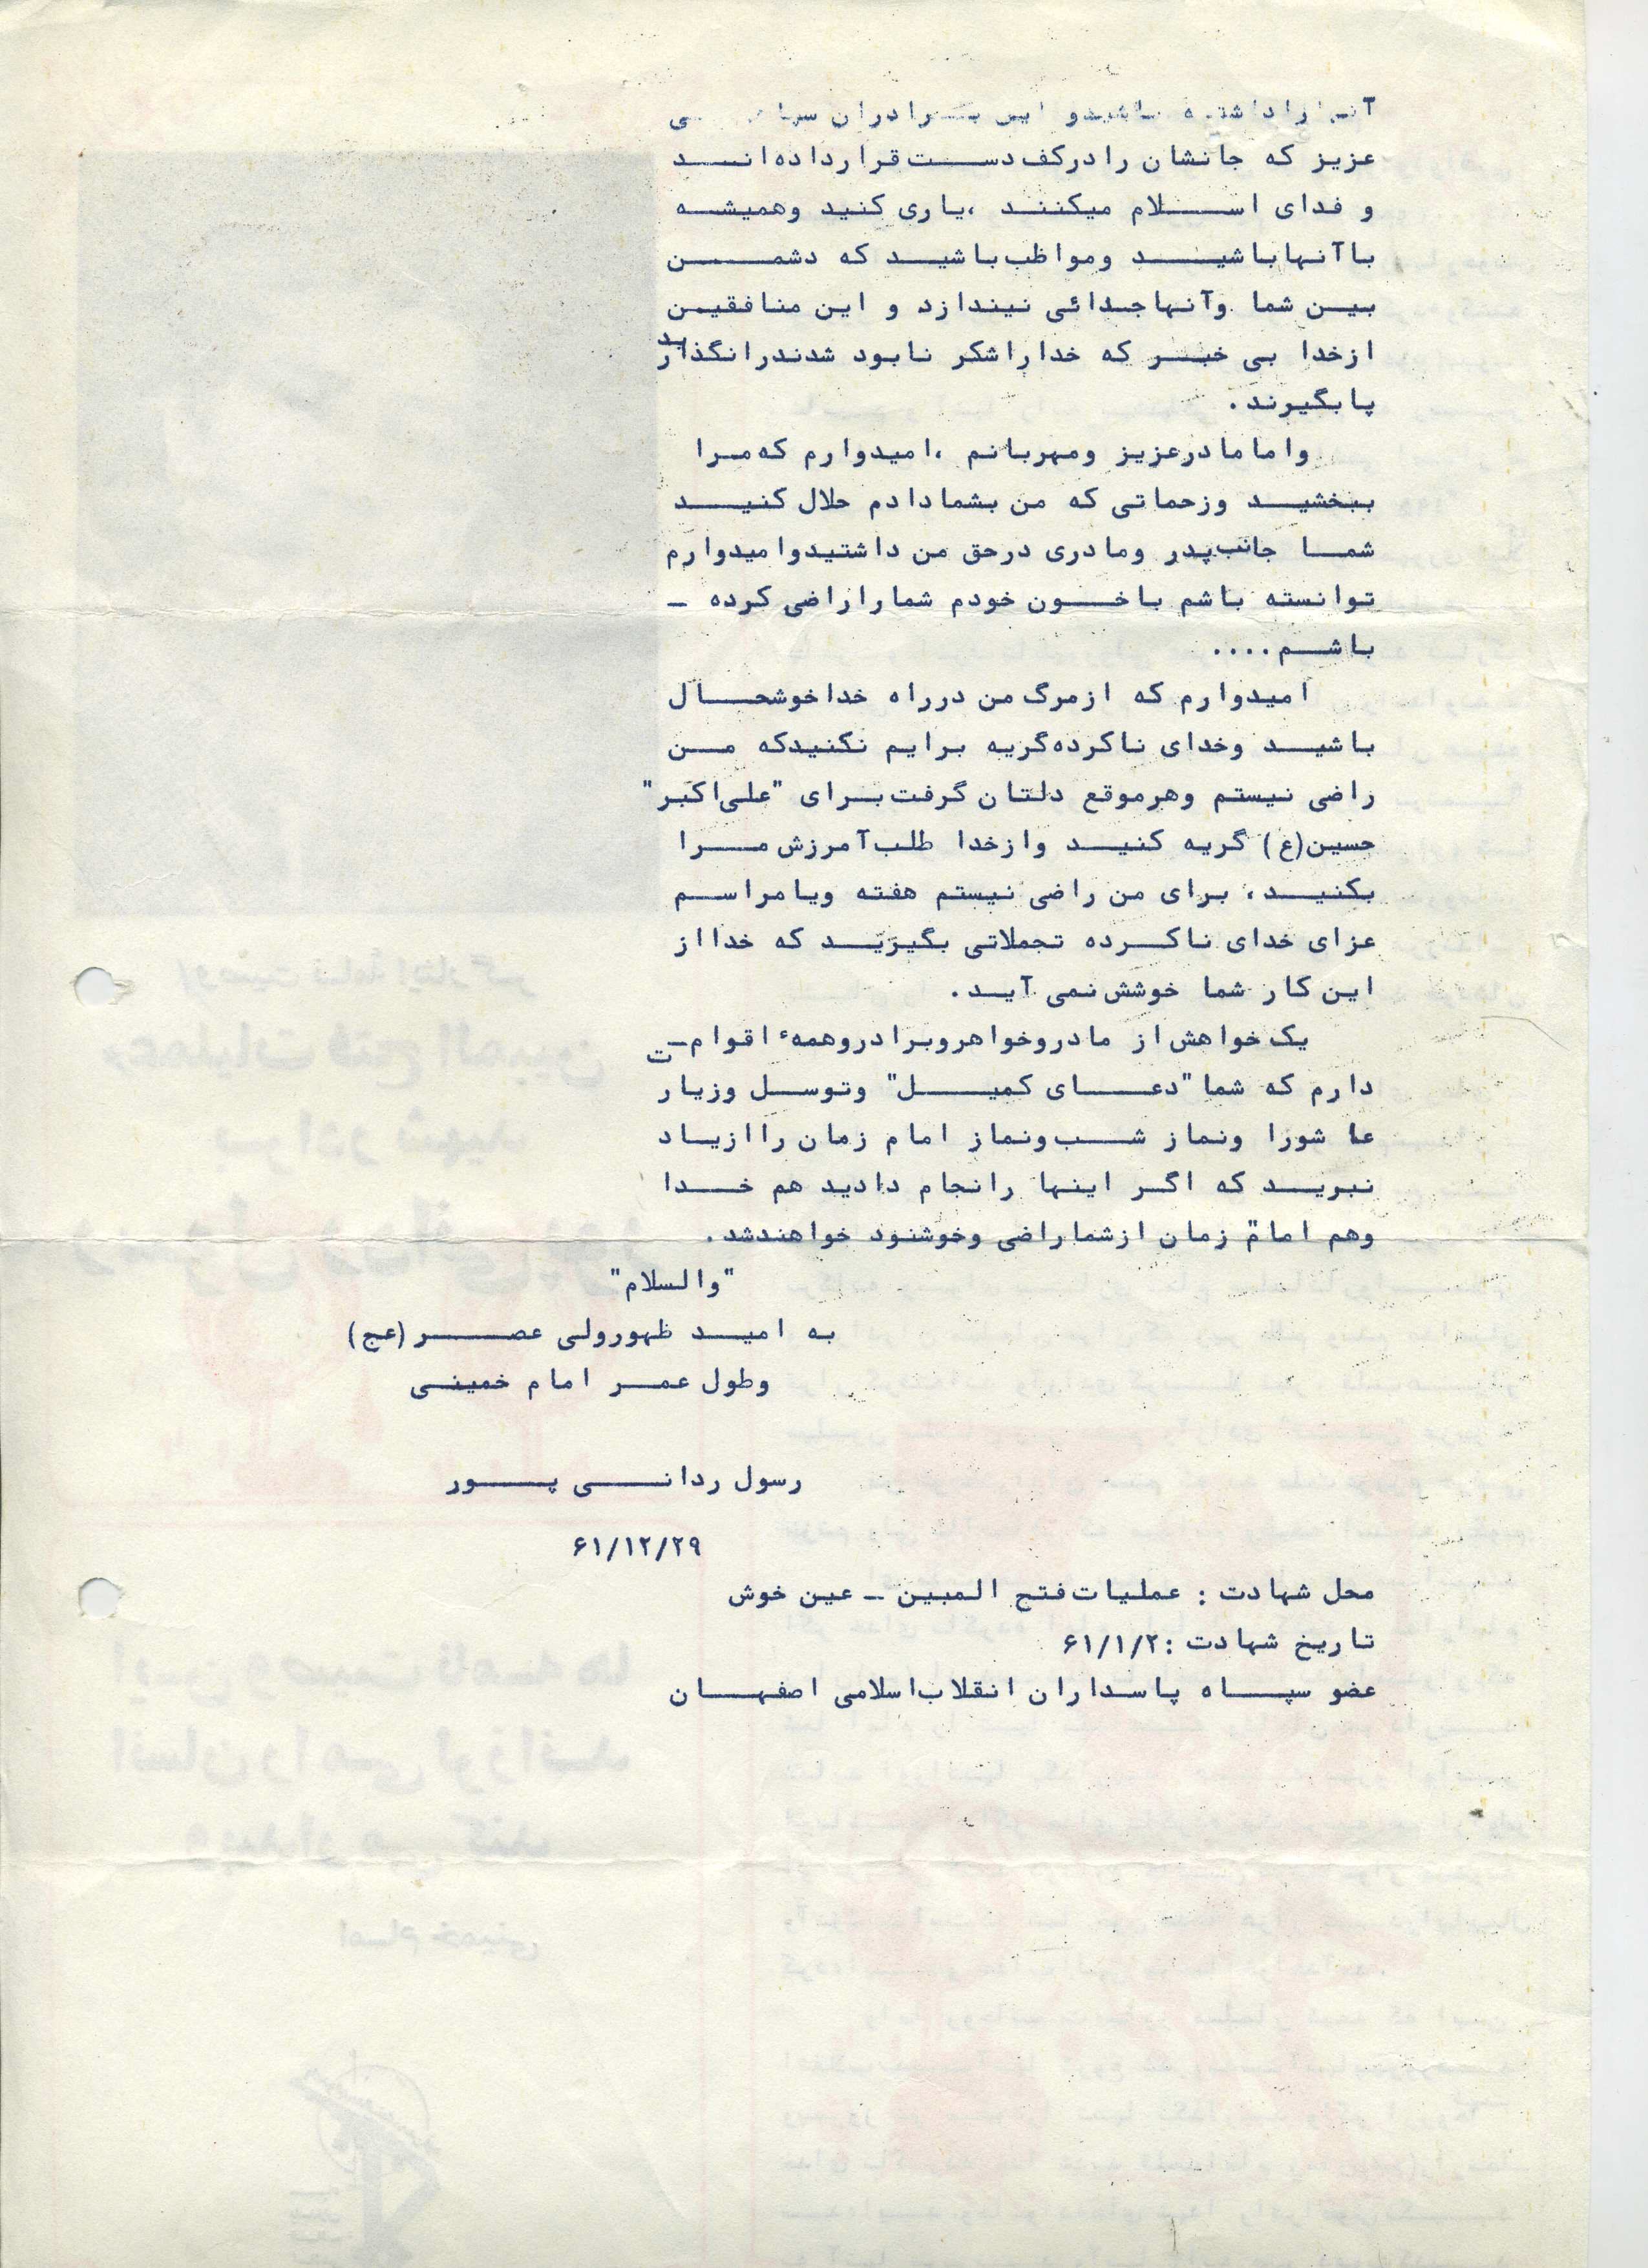 آنرا داشته باشید و این برادران
عزیز که جانشان را درکف دست قرارداده‌اند
و فدای اسلام میکنند ،یاری کنید وهمیشه
باآنهاباشید ومواظب‌باشید که دشمن
بین شما وآنهاجدائی نیندازد و این منافقین
ازخدا بی خبر که خداراشکر نابود شدندرانگذارید
پابگیرند.
وامامادرعزیز ومهربانم ،امیدوارم که‌مرا
ببخشید وزحماتی که من بشمادادم حلال کنید
شما جانب‌پدر ومادری درحق من داشتیدوامیدوارم
توانسته باشم باخون خودم شماراراضی کرده -
باشم....
امیدوارم که ازمرگ من درراه خداخوشحال
باشید وخدای ناکرده‌گریه برایم نکنیدکه من
راضی نیستم وهرموقع دلتان گرفت‌برای "علی‌اکبر"
حسین(ع) گریه کنید وازخدا طلب‌آمرزش‌مرا
بکنید، برای من راضی نیستم هفته ویامراسم
عزای خدای ناکرده تجملاتی بگیرید که خدااز
این کار شما خوشش‌نمی آید.
یک‌خواهش‌از مادروخواهروبرادروهمهٔ اقوام-
دارم که شما "دعای کمیل" وتوسل وزیارت
عا شورا ونماز شب‌ونماز امام زمان راازیاد
نبرید که اگر اینها رانجام دادید هم خدا
وهم امام زمان ازشماراضی وخوشنود خواهندشد.
"والسلام"
به امید ظهورولی عصر(عج)
وطول عمر امام خمینی
رسول ردانی پور
۶۱/۱۲/۲۹
محل شهادت : عملیات‌فتح المبین - عین خوش
تاریخ شهادت :۶۱/۱/۲
عضو سپاه پاسداران انقلاب‌اسلامی اصفهان